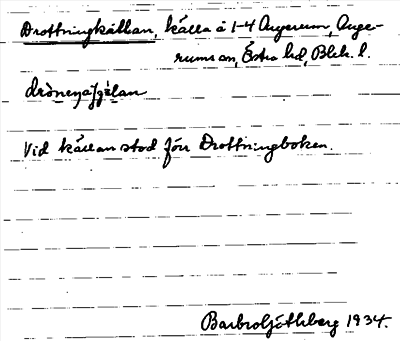 Drottningkällan, källa å 1-4 Augerum, Auge-
rums sn, Östra hd, Blek. l.
Vid källan stod förr Drottningboken.
Barbro Ljethberg 1934.